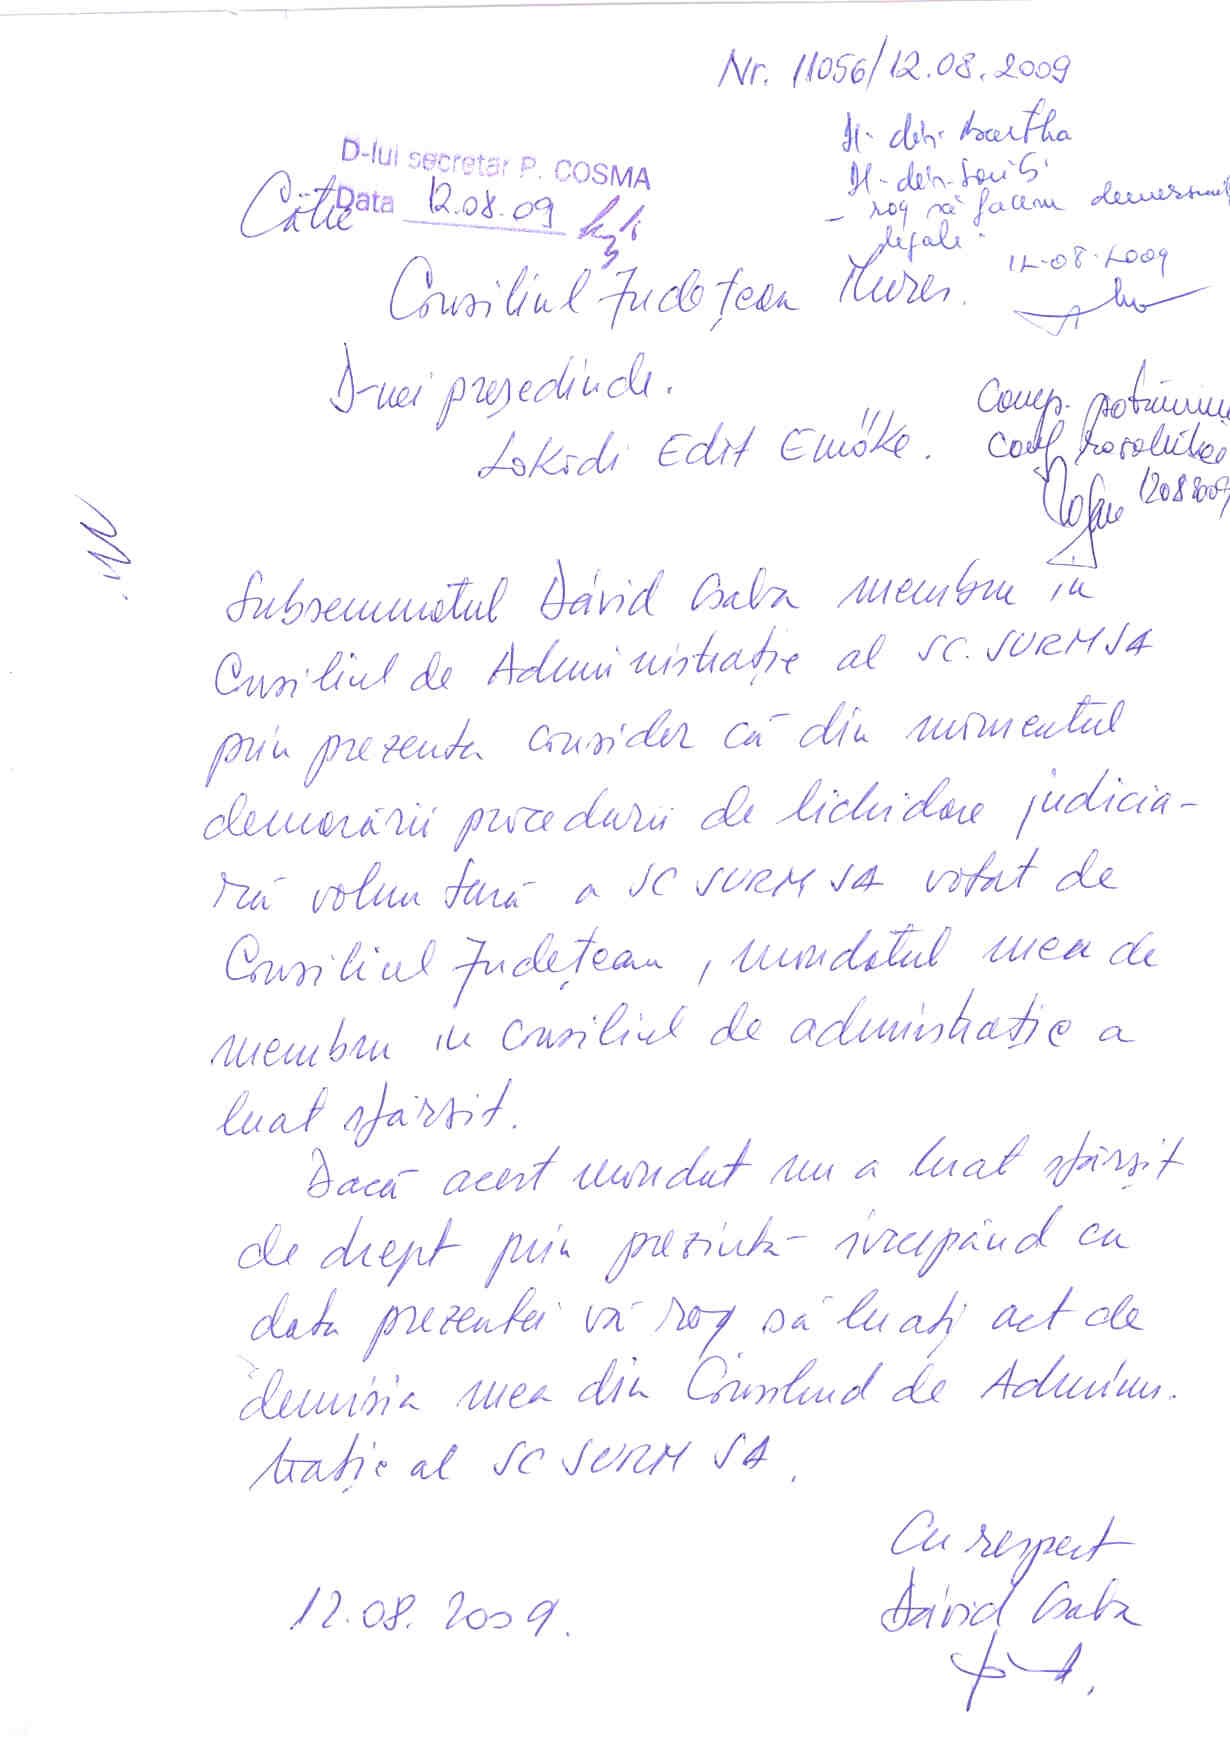 Nr. 11056/12.08.2009
D-lui secretar P. COSMA
Data 12.08.09
Către
Bartha
- rog să facem demersurile
legale.
12.08.2009
Consiliul Județean Mureș.
D-nei președinde.
Lokodi Edit Emőke.
Comp.
12082009
Subsemnatul Dávid Csaba membru in
Consiliul de Administrație al SC. SURM SA
prin prezenta consider că din momentul
demarării procedurii de lichidare judicia-
ră voluntară a SC SURM SA votat de
Consiliul Județean, mandatul meu de
membru in consiliul de administrație a
luat sfârsit.
Dacă acest mandat nu a luat sfârșit
de drept prin prezinta incepând cu
data prezentei vă rog să luați act de
demisia mea din Consiliul de Adminis.
trație al SC SURM SA.
Cu respect
12.08.2009.
Dávid Csaba